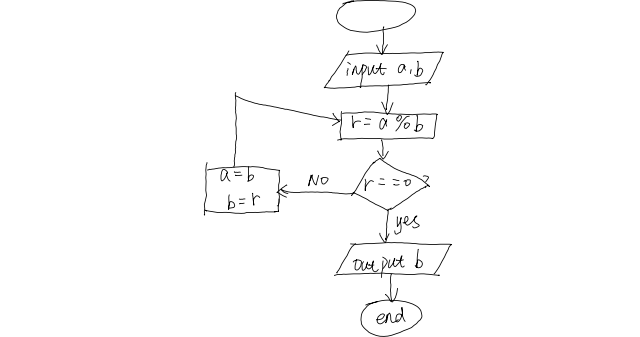 input a,b
r = a % b
r == 0 ?
No
a = b
b = r
yes
output b
end